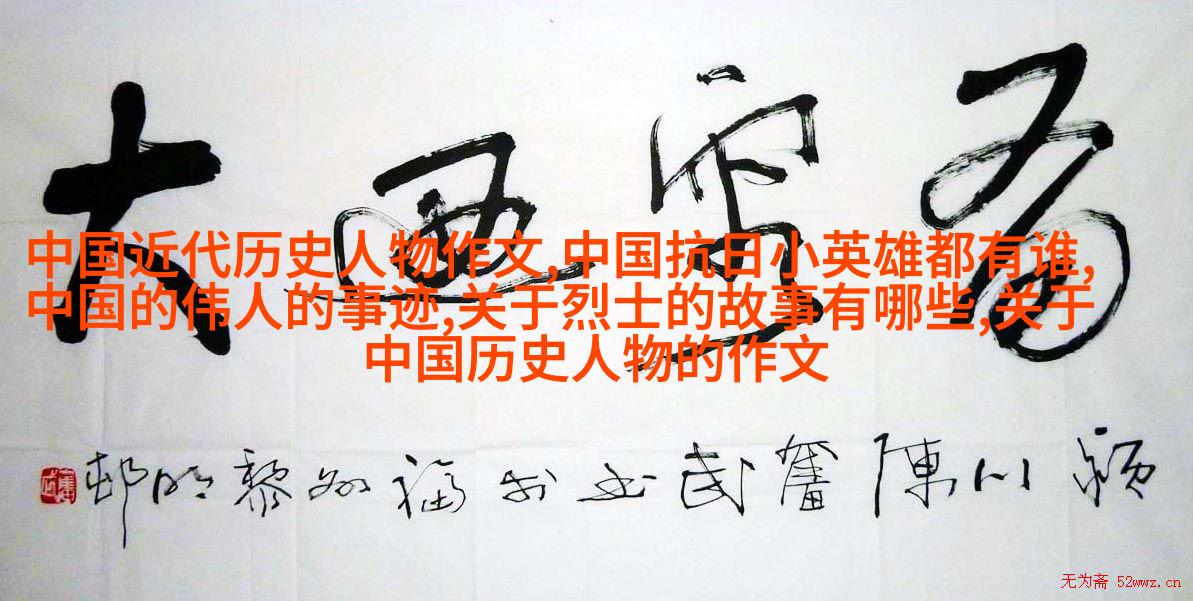 有容迺大
中国近代历史人物作文,中国抗日小英雄都有谁,
中国的伟人的事迹,关于烈士的故事有哪些,关于
中国历史人物的作文
颍川陳奮武书于福州黎明邨
无为斋 52wwz.cn